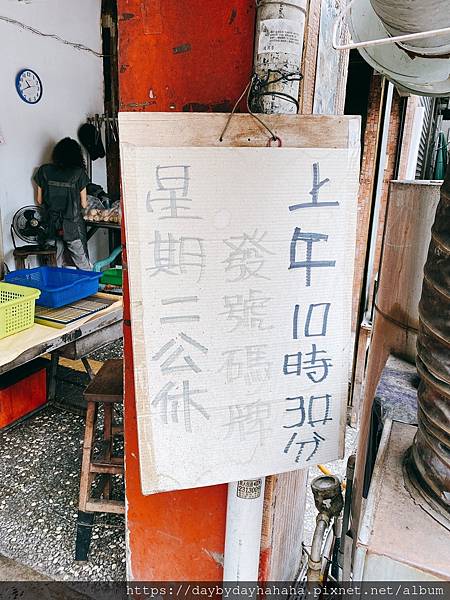 上午10時30分
發號碼牌
星期二公休
https://daybydayhahaha.pixnet.net/album